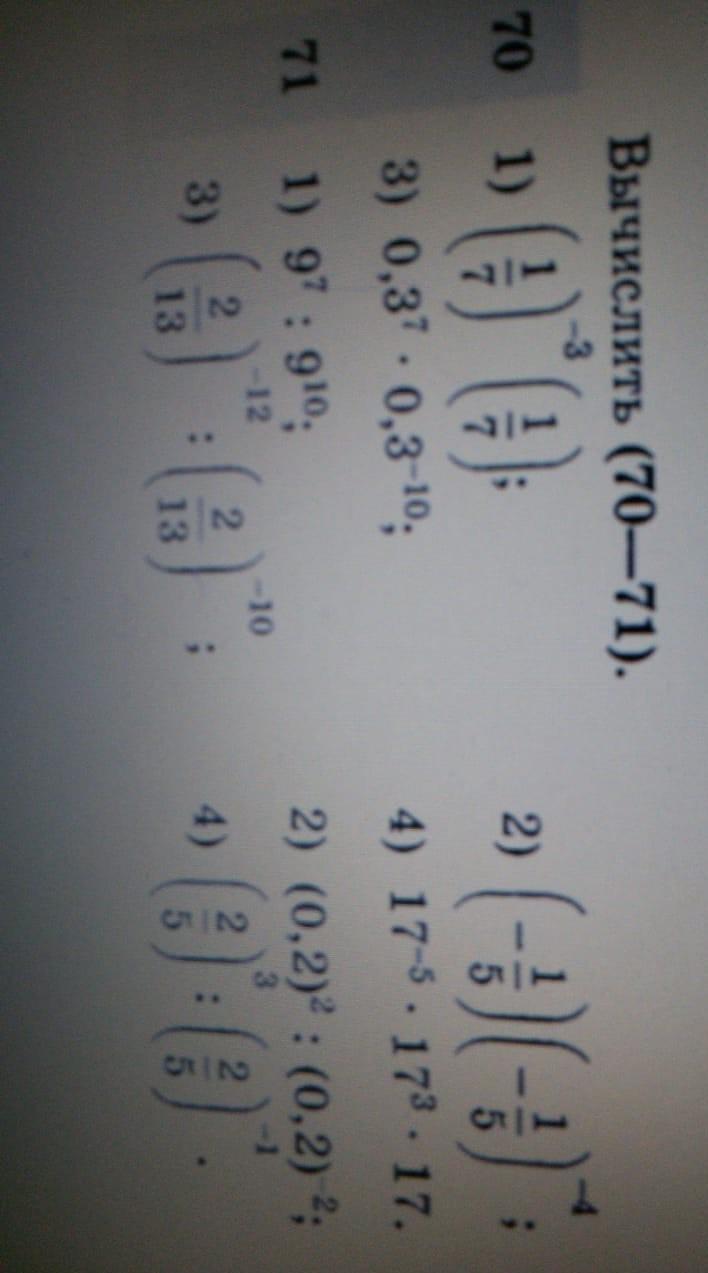 Вычислить (70—71).
70 1) (1/7)⁻³ (1/7); 2) (−1/5)(−1/5)⁻⁴;
3) 0,3⁷ · 0,3⁻¹⁰; 4) 17⁻⁵ · 17³ · 17.
71 1) 9⁷ : 9¹⁰; 2) (0,2)² : (0,2)⁻²;
3) (2/13)⁻¹² : (2/13)⁻¹⁰; 4) (2/5)³ : (2/5)⁻¹.